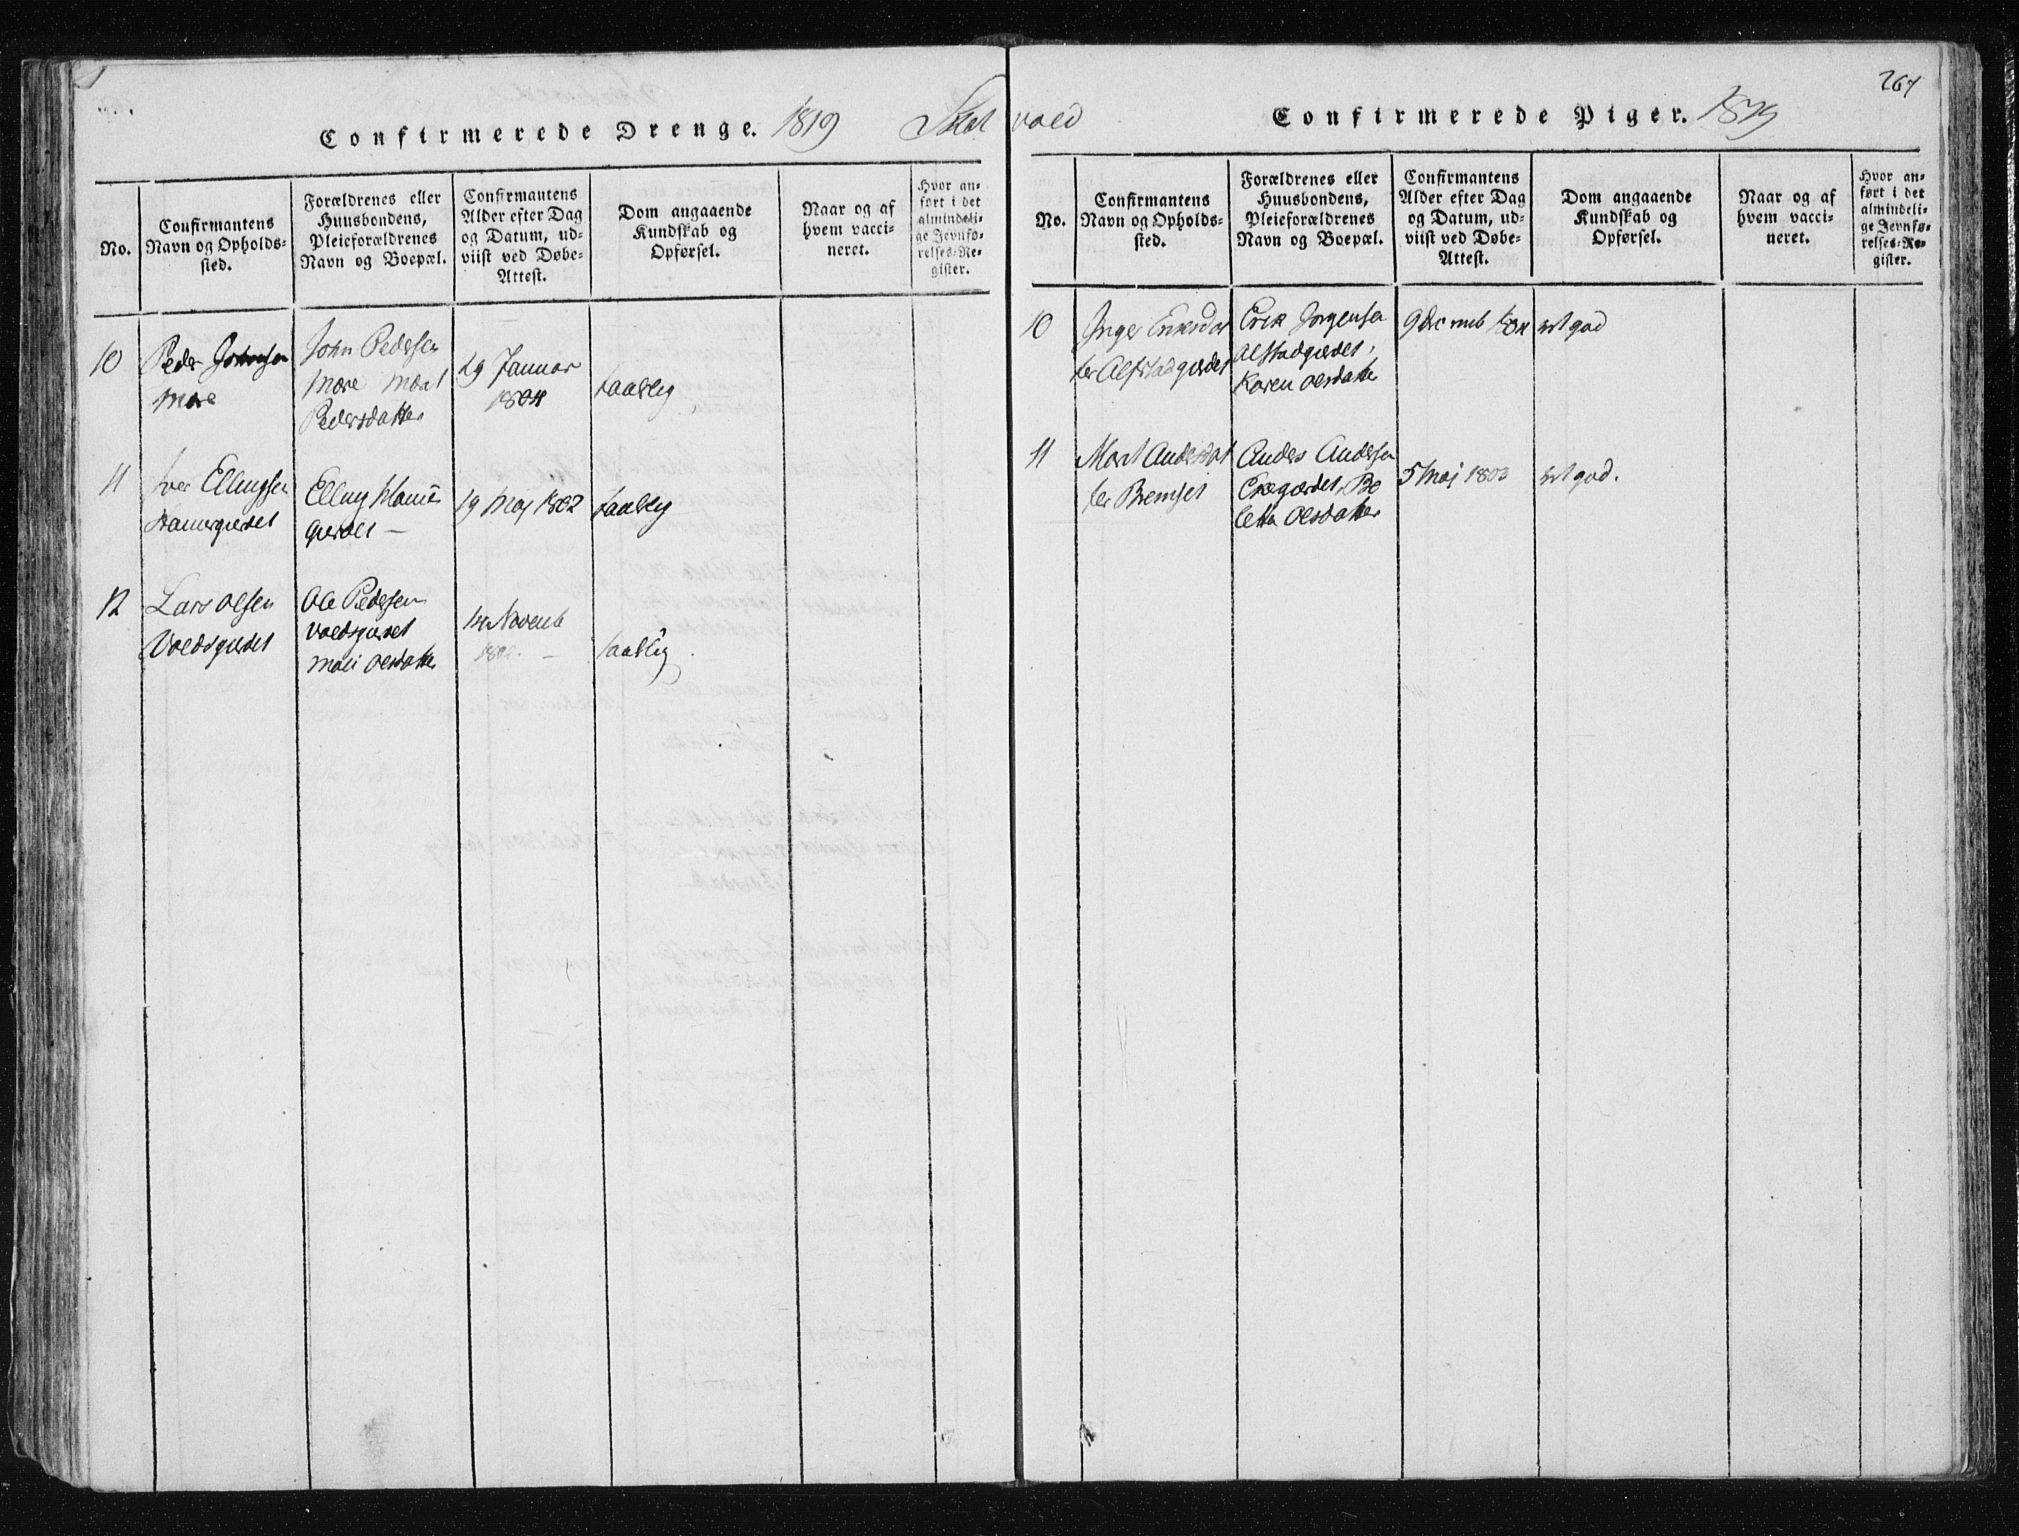 Confirmerede Drenge. 1819
No.
Confirmantens
Navn og Opholds-
sted.
Forældrenes eller
Huusbondens,
Pleieforældrenes
Navn og Boepæl.
Confirmantens
Alder efter Dag
og Datum, ud-
viist ved Døbe-
Attest.
Dom angaaende
Kundskab og
Opførsel.
Naar og af
hvem vacci-
neret.
Hvor an-
ført i det
almindeli-
ge Jevnfø-
relses-Re-
gister.
10
Peder Johnsen
Mære
John Pedersen
Mære Marit
Pedersdatter
29 Januar
1804
taalelig
11
Iver Ellingsen
Hammergierdet
Elling Hamer
gierdet —
19 Maj 1802
taalelig
12
Lars Olsen
Voldsgierdet
Ole Pedersen
Voldsgierdet
Mali Olsdatter
14 Novemb
taalelig
Confirmerede Piger. 1819
267
No.
Confirmantens
Navn og Opholds-
sted.
Forældrenes eller
Huusbondens,
Pleieforældrenes
Navn og Boepæl.
Confirmantens
Alder efter Dag
og Datum, ud-
viist ved Døbe-
Attest.
Dom angaaende
Kundskab og
Opførsel.
Naar og af
hvem vacci-
neret.
Hvor an-
ført i det
almindeli-
ge Jevnfø-
relses-Re-
gister.
10
Inger Eriksdat
ter Alfstadgierdet
Erik Jørgensen
Alfstadgierdet,
Karen Olsdatter
9 Decemb 1804
ret god
11
Marit Andersdat
ter Bremset
Anders Andersen
Be
letta Olsdatter
5 Maj 1803
ret god.